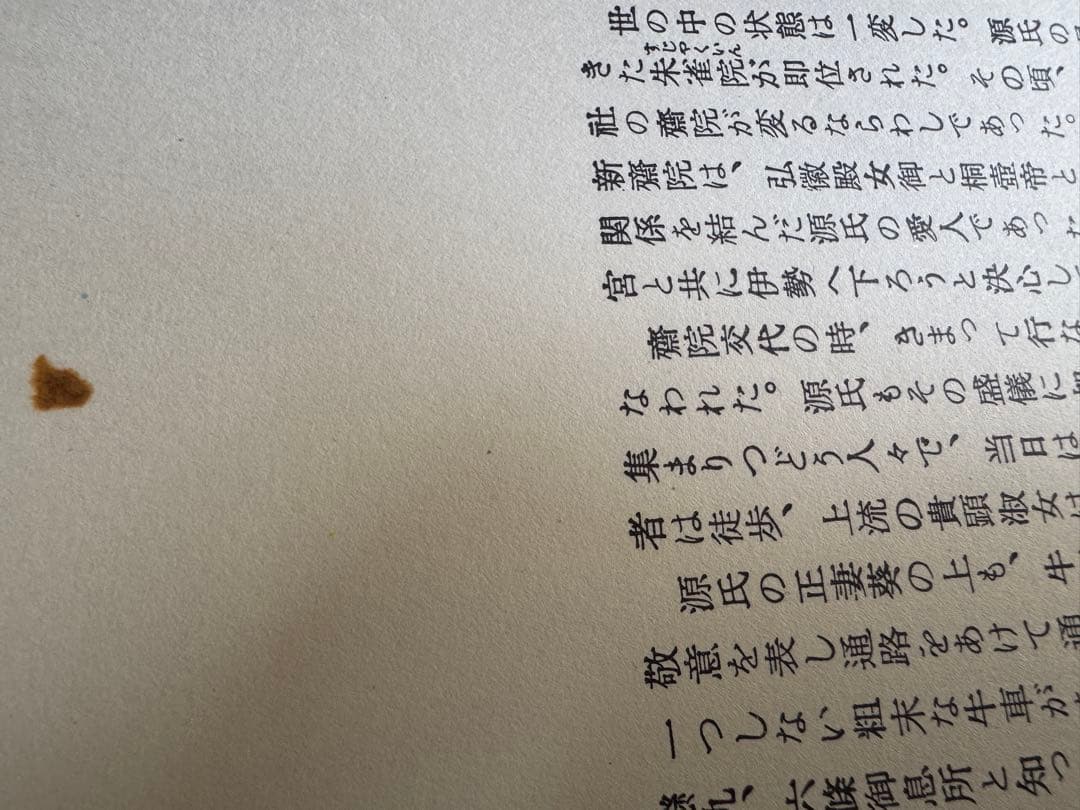 世の中の状態は一変した。源氏の
きた朱雀院が即位された。その頃、
すじやくいん
社の齋院が変るならわしであった。
新齋院は、弘徽殿女御と桐壺帝と
関係を結んだ源氏の愛人であった
宮と共に伊勢へ下ろうと決心し
齋院交代の時、きまって行な
なわれた。源氏もその盛儀に
集まりつどう人々で、当日は
者は徒歩、上流の貴顕淑女は
源氏の正妻葵の上も、牛
敬意を表し通路をあけて通
一つしない粗末な牛車が
、六條御息所と知っ